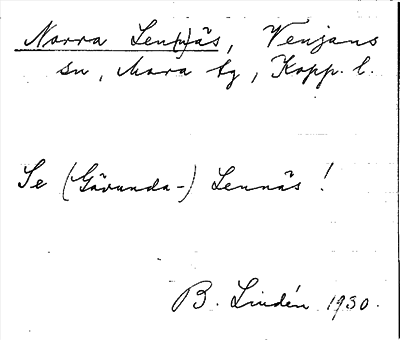 Norra Len(n)äs, Venjans
sn, Mora tg, Kopp. l.
Se (Gävunda-) Lennäs!
B. Lindén 1930.